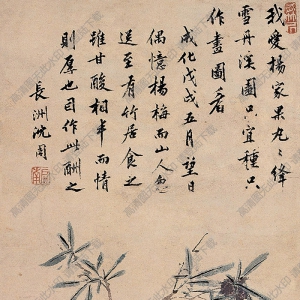 我愛楊家果九々絳
雪丹深圖只宜種只
作畫圖看
成化戊戌五月望日
偶憶楊梅而山人忽
送至有竹居食之
雖甘酸相半而情
則厚也因作此酬之
長洲沈周